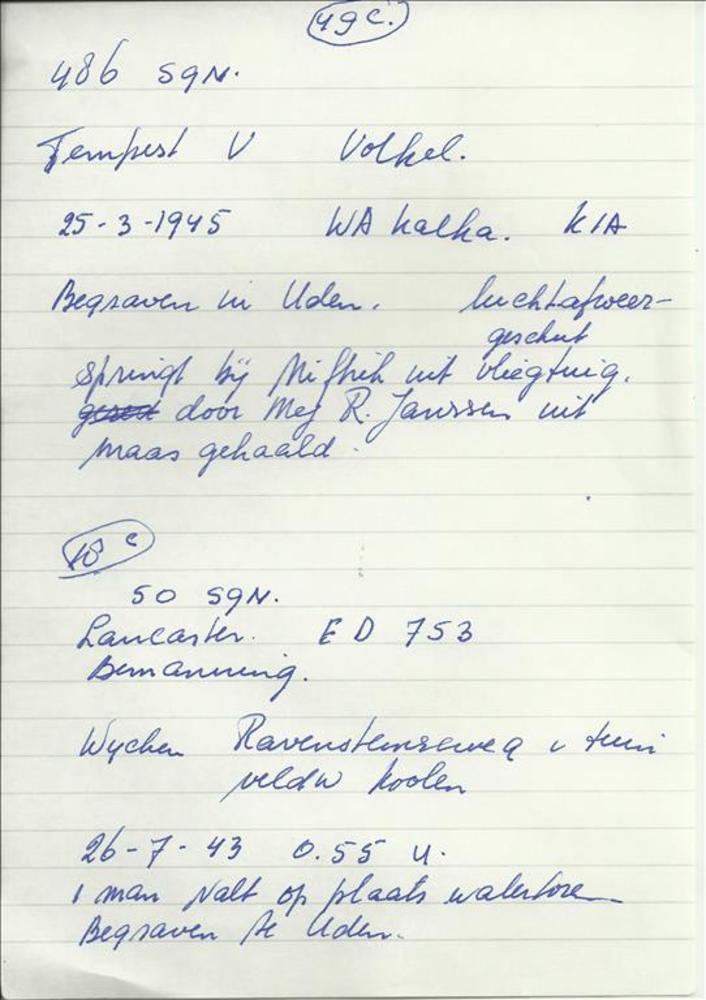 49 c.
486 SQN.
Tempest V Volkel.
25-3-1945 WA Kalka. KIA
Begraven in Uden. luchtafweer-
geschut
springt bij Niftrik uit vliegtuig.
door Mej R. Janssen uit
Maas gehaald.
18 c
50 SQN.
Lancaster. ED 753
Bemanning.
Wychen Ravensteinseweg tuin
veldw Koolen
26-7-43 0.55 u.
1 man valt op plaats watertoren
Begraven te Uden.